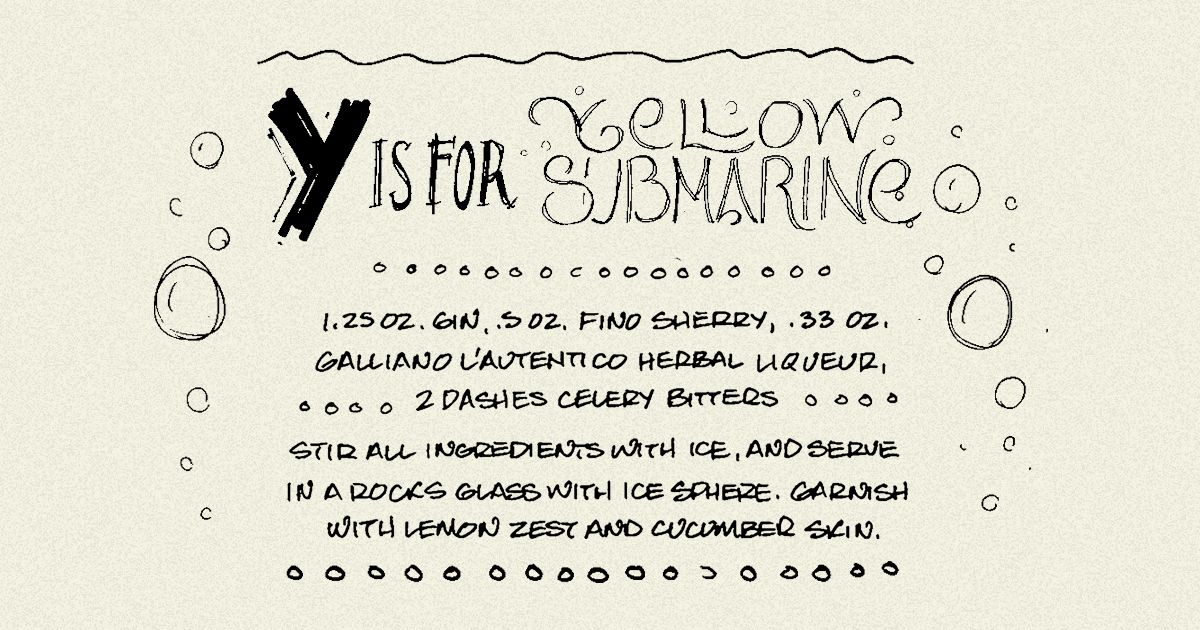 Y IS FOR YELLOW
SUBMARINE
1.25 OZ. GIN, .5 OZ. FINO SHERRY, .33 OZ.
GALLIANO L'AUTENTICO HERBAL LIQUEUR,
2 DASHES CELERY BITTERS
STIR ALL INGREDIENTS WITH ICE, AND SERVE
IN A ROCKS GLASS WITH ICE SPHERE. GARNISH
WITH LEMON ZEST AND CUCUMBER SKIN.